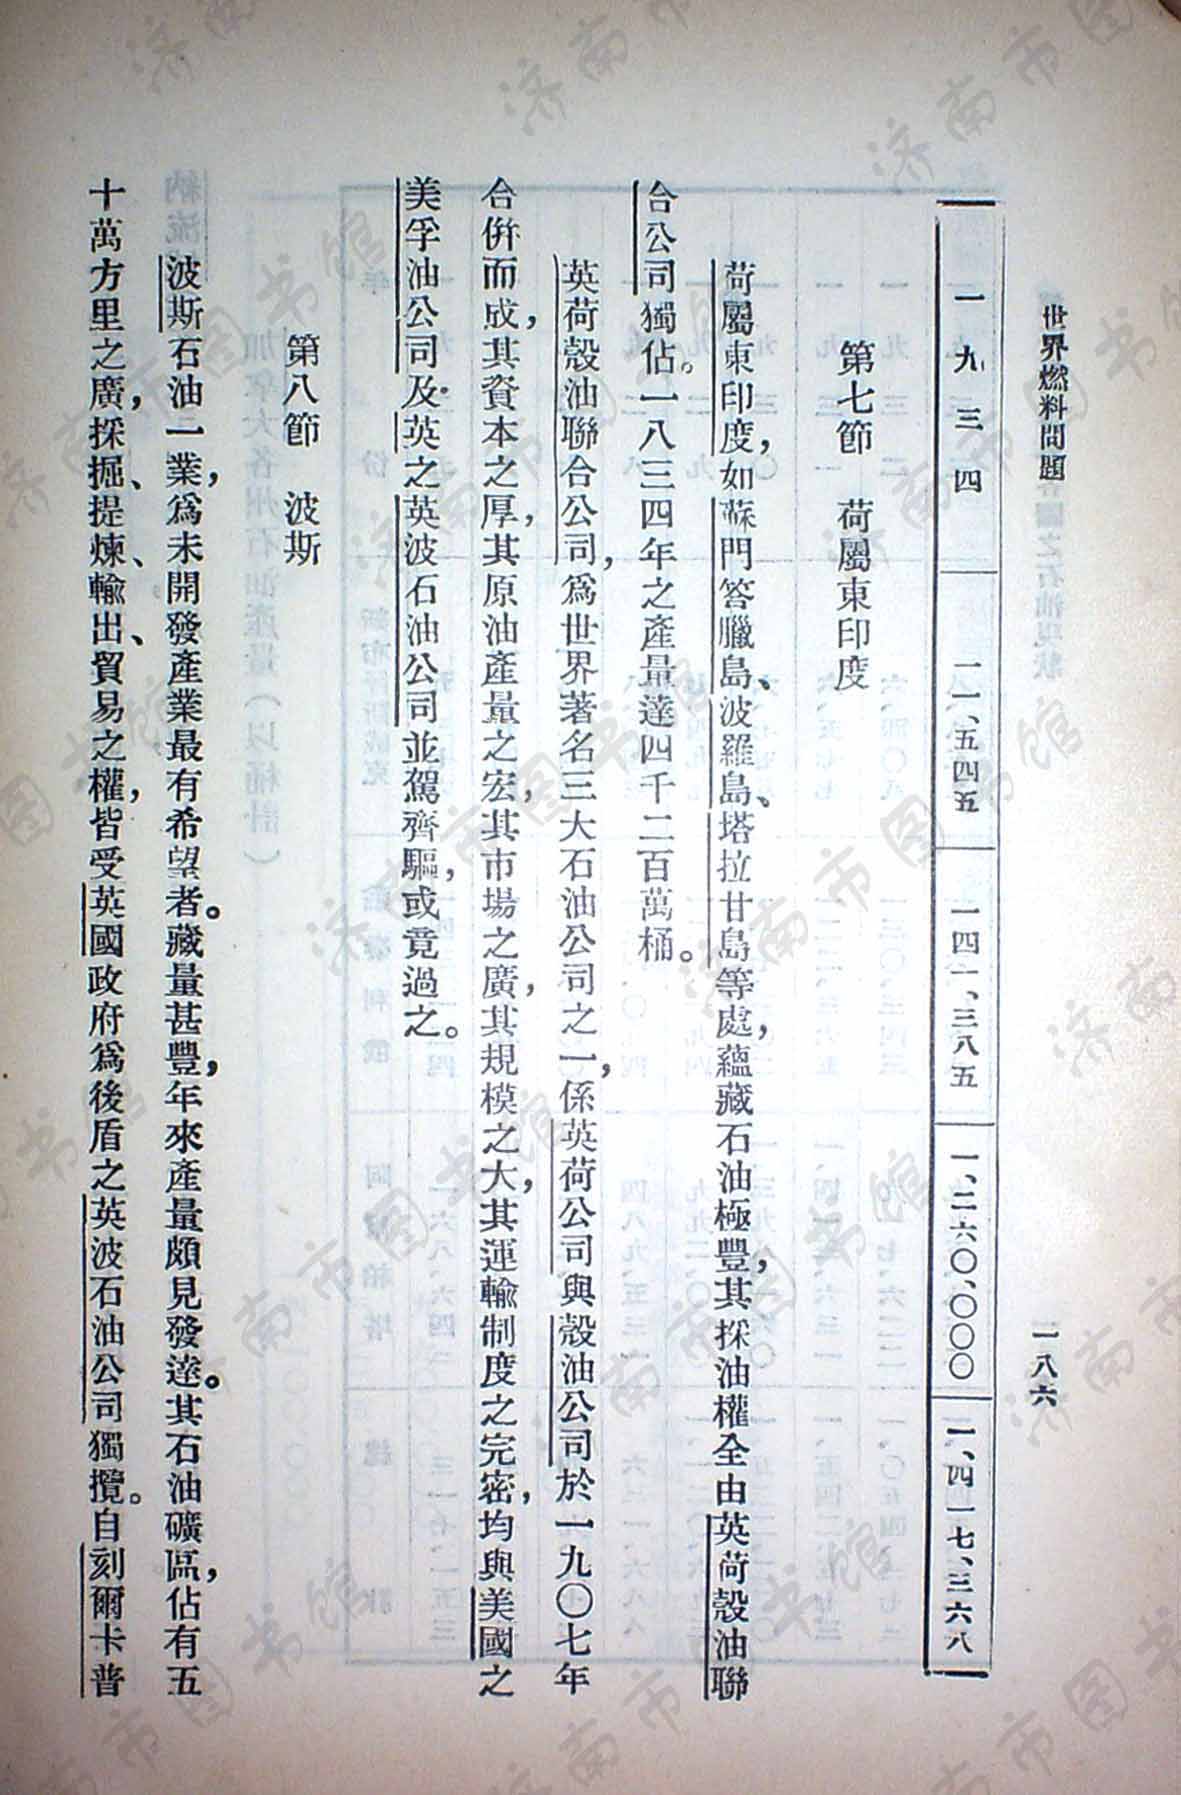 世界燃料問題
一八六
一九三四 一一、五四五 一四一、三八五 一、二六〇、〇〇〇 一、四一七、三六八
第七節 荷屬東印度
荷屬東印度，如蘇門答臘島、波羅島、塔拉甘島等處，蘊藏石油極豐，其採油權全由英荷殼油聯
合公司獨佔。一八三四年之產量達四千二百萬桶。
英荷殼油聯合公司，爲世界著名三大石油公司之一，係英荷公司與殼油公司於一九〇七年
合倂而成，其資本之厚，其原油產量之宏，其市場之廣，其規模之大，其運輸制度之完密，均與美國之
美孚油公司及英之英波石油公司並駕齊驅，或竟過之。
第八節 波斯
波斯石油一業，爲未開發產業最有希望者。藏量甚豐，年來產量頗見發達。其石油礦區，佔有五
十萬方里之廣，採掘、提煉、輸出、貿易之權，皆受英國政府爲後盾之英波石油公司獨攬。自刻爾卡普
济南市图书馆